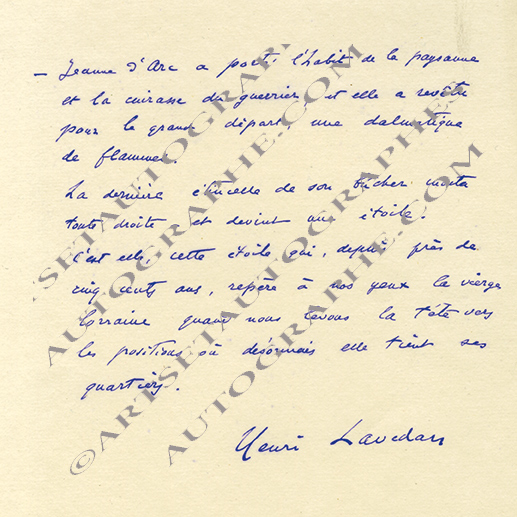 — Jeanne d'Arc a porté l'habit de la paysanne
et la cuirasse du guerrier, et elle a revêtu
pour le grand départ, une dalmatique
de flammes.
La dernière étincelle de son bûcher monta
toute droite et devint une étoile.
C'est elle, cette étoile qui, depuis près de
cinq cents ans, repère à nos yeux la vierge
Lorraine quand nous levons la tête vers
les positions où désormais elle tient ses
quartiers.
Henri Lavedan
©ARTSETAUTOGRAPHES
AUTOGRAPHE.COM